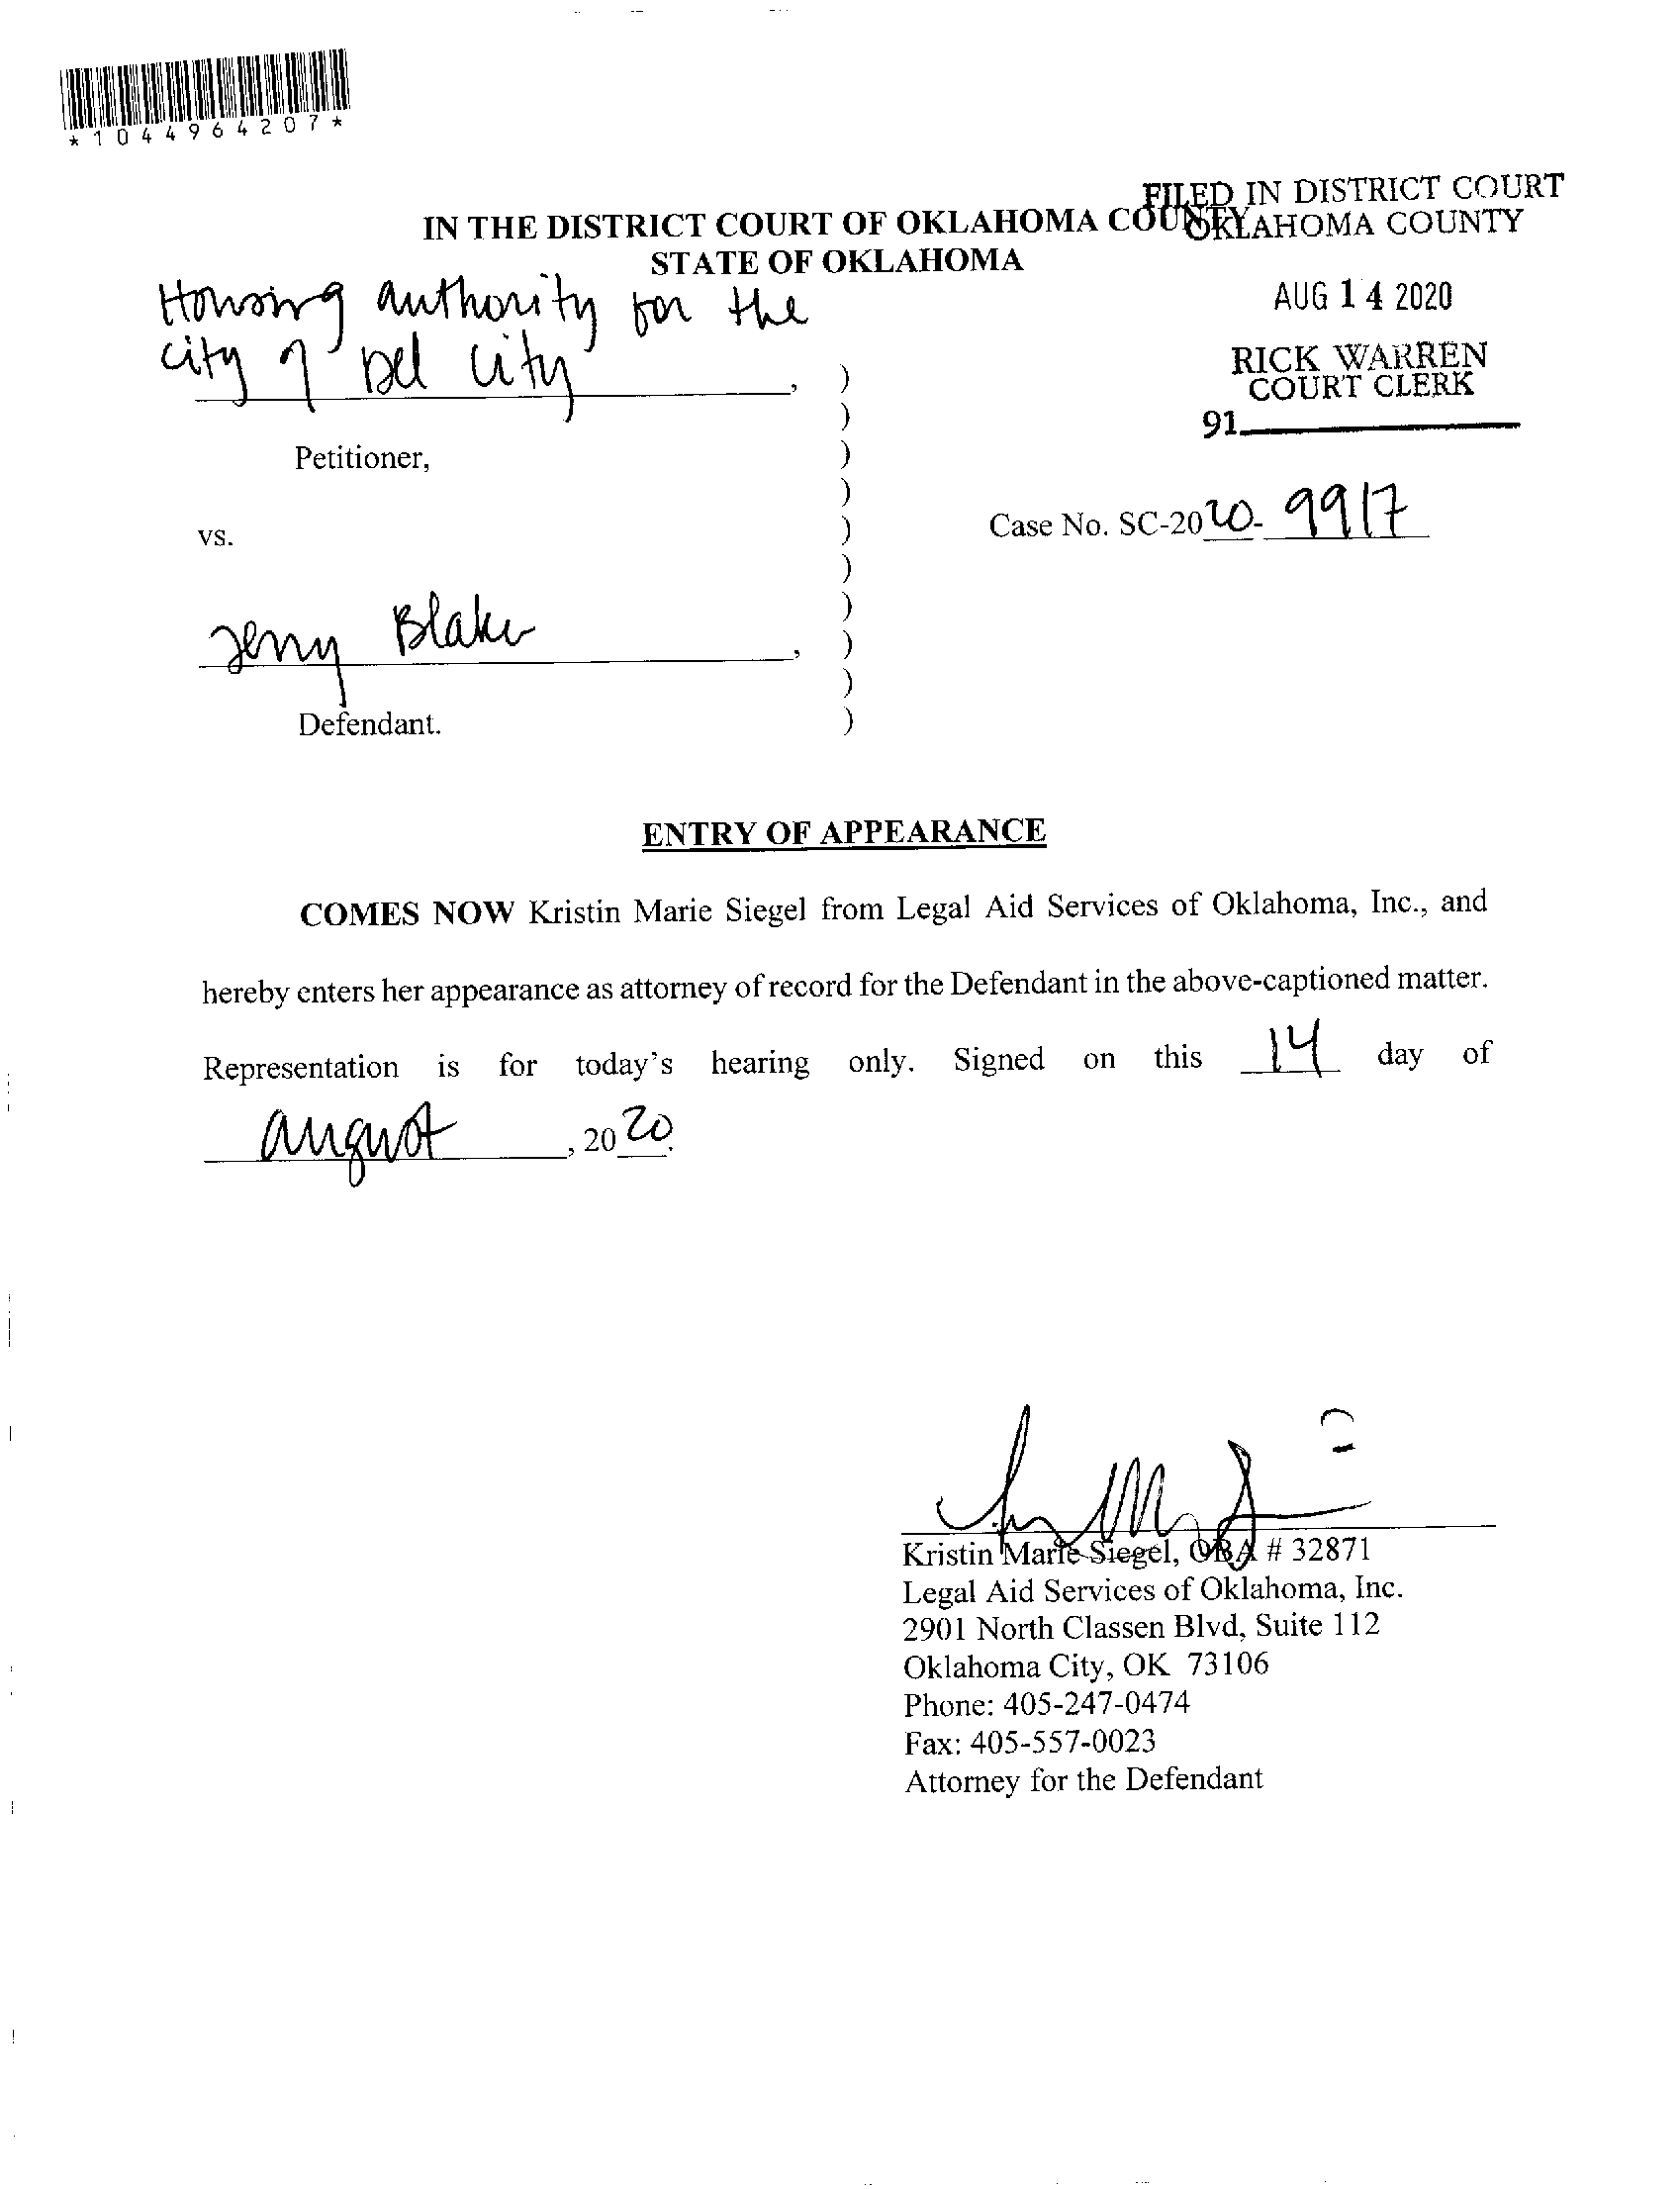 *1044964207*
FILED IN DISTRICT COURT
OKLAHOMA COUNTY
IN THE DISTRICT COURT OF OKLAHOMA COUNTY
STATE OF OKLAHOMA
AUG 14 2020
RICK WARREN
COURT CLERK
91
Housing authority for the
city of Del City,
)
)
Petitioner, )
)
vs. )
Case No. SC-2020-9917
)
)
Jerry Blake, )
)
Defendant. )
ENTRY OF APPEARANCE
COMES NOW Kristin Marie Siegel from Legal Aid Services of Oklahoma, Inc., and
hereby enters her appearance as attorney of record for the Defendant in the above-captioned matter.
Representation is for today's hearing only. Signed on this 14 day of
august, 2020.
Kristin Marie Siegel, OBA # 32871
Legal Aid Services of Oklahoma, Inc.
2901 North Classen Blvd, Suite 112
Oklahoma City, OK 73106
Phone: 405-247-0474
Fax: 405-557-0023
Attorney for the Defendant